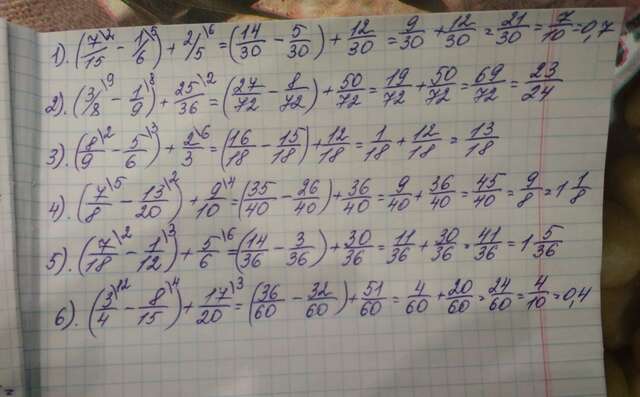 1). (7/15\2 - 1/6\5) + 2/5\6 = (14/30 - 5/30) + 12/30 = 9/30 + 12/30 = 21/30 = 7/10 = 0,7
2). (3/8\9 - 1/9\8) + 25/36\2 = (27/72 - 8/72) + 50/72 = 19/72 + 50/72 = 69/72 = 23/24
3). (8/9\2 - 5/6\3) + 2/3\6 = (16/18 - 15/18) + 12/18 = 1/18 + 12/18 = 13/18
4). (7/8\5 - 13/20\2) + 9/10\4 = (35/40 - 26/40) + 36/40 = 9/40 + 36/40 = 45/40 = 9/8 = 1 1/8
5). (7/18\2 - 1/12\3) + 5/6\6 = (14/36 - 3/36) + 30/36 = 11/36 + 30/36 = 41/36 = 1 5/36
6). (3/4\12 - 8/15\4) + 17/20\3 = (36/60 - 32/60) + 51/60 = 4/60 + 20/60 = 24/60 = 4/10 = 0,4